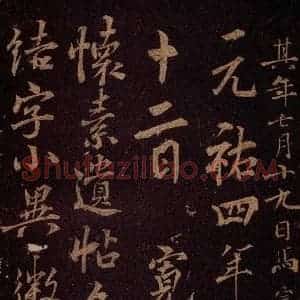 其年七月十九日馬
元祐四年
十二日寬
懷素遺帖
結字小異徽
Shufaziliao.com